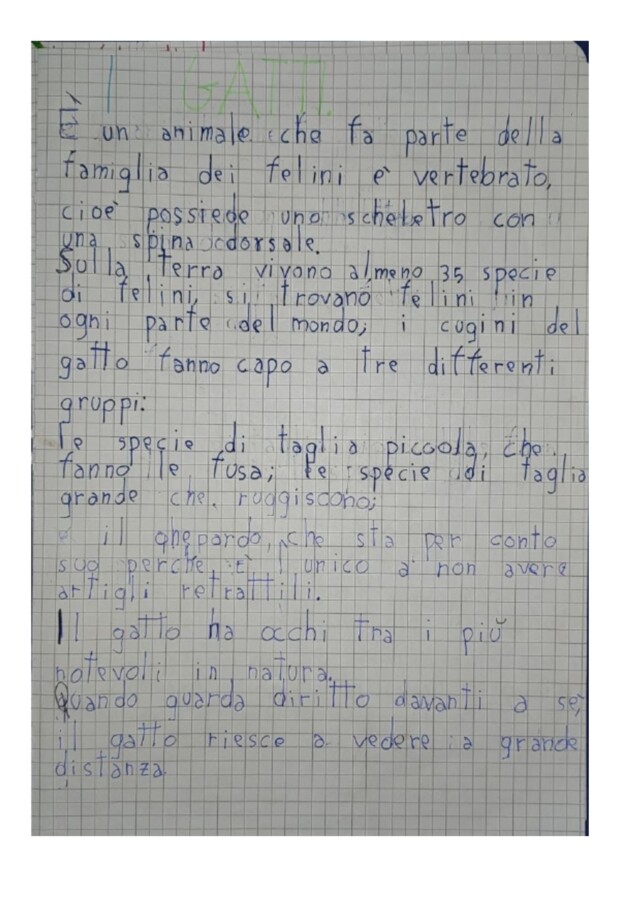 I GATTI.
È un animale che fa parte della
famiglia dei felini è vertebrato,
cioè possiede uno scheletro con
una spina dorsale.
Sulla terra vivono almeno 35 specie
di felini, si trovano felini in
ogni parte del mondo; i cugini del
gatto fanno capo a tre differenti
gruppi:
le specie di taglia piccola, che
fanno le fusa; le specie di taglia
grande che ruggiscono;
il ghepardo, che sta per conto
suo perchè è l'unico a non avere
artigli retrattili.
Il gatto ha occhi tra i più
notevoli in natura.
Quando guarda diritto davanti a sé,
il gatto riesce a vedere a grande
distanza